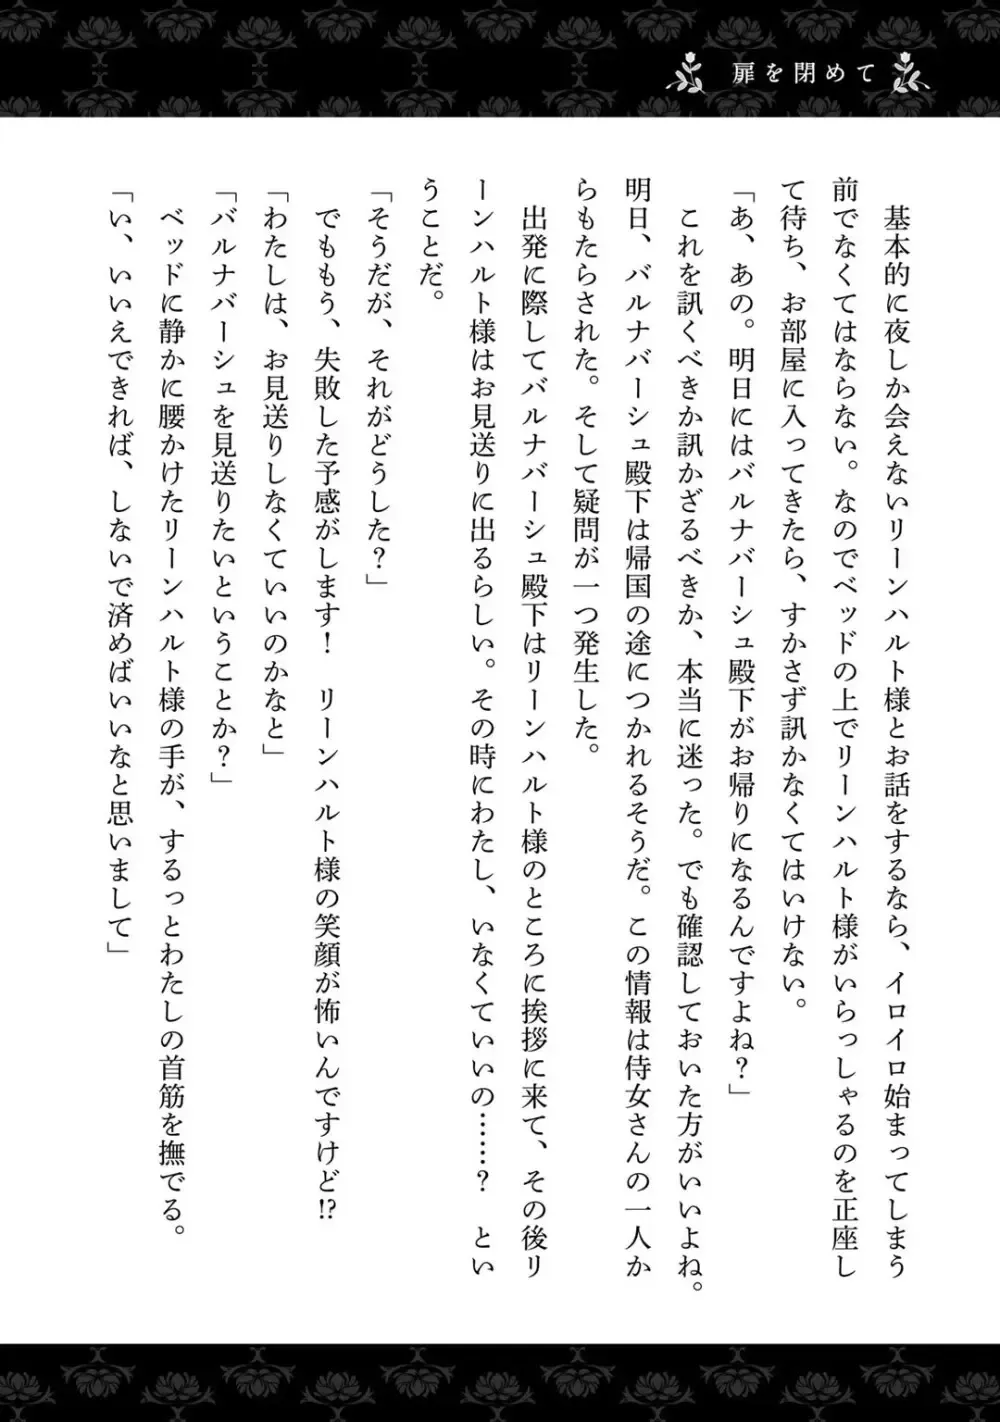 扉を閉めて
　基本的に夜しか会えないリーンハルト様とお話をするなら、イロイロ始まってしまう
前でなくてはならない。なのでベッドの上でリーンハルト様がいらっしゃるのを正座し
て待ち、お部屋に入ってきたら、すかさず訊かなくてはいけない。
「あ、あの。明日にはバルナバーシュ殿下がお帰りになるんですよね？」
　これを訊くべきか訊かざるべきか、本当に迷った。でも確認しておいた方がいいよね。
明日、バルナバーシュ殿下は帰国の途につかれるそうだ。この情報は侍女さんの一人か
らもたらされた。そして疑問が一つ発生した。
　出発に際してバルナバーシュ殿下はリーンハルト様のところに挨拶に来て、その後リ
ーンハルト様はお見送りに出るらしい。その時にわたし、いなくていいの……？　とい
うことだ。
「そうだが、それがどうした？」
　でももう、失敗した予感がします！　リーンハルト様の笑顔が怖いんですけど⁉
「わたしは、お見送りしなくていいのかなと」
「バルナバーシュを見送りたいということか？」
　ベッドに静かに腰かけたリーンハルト様の手が、するっとわたしの首筋を撫でる。
「い、いいえできれば、しないで済めばいいなと思いまして」